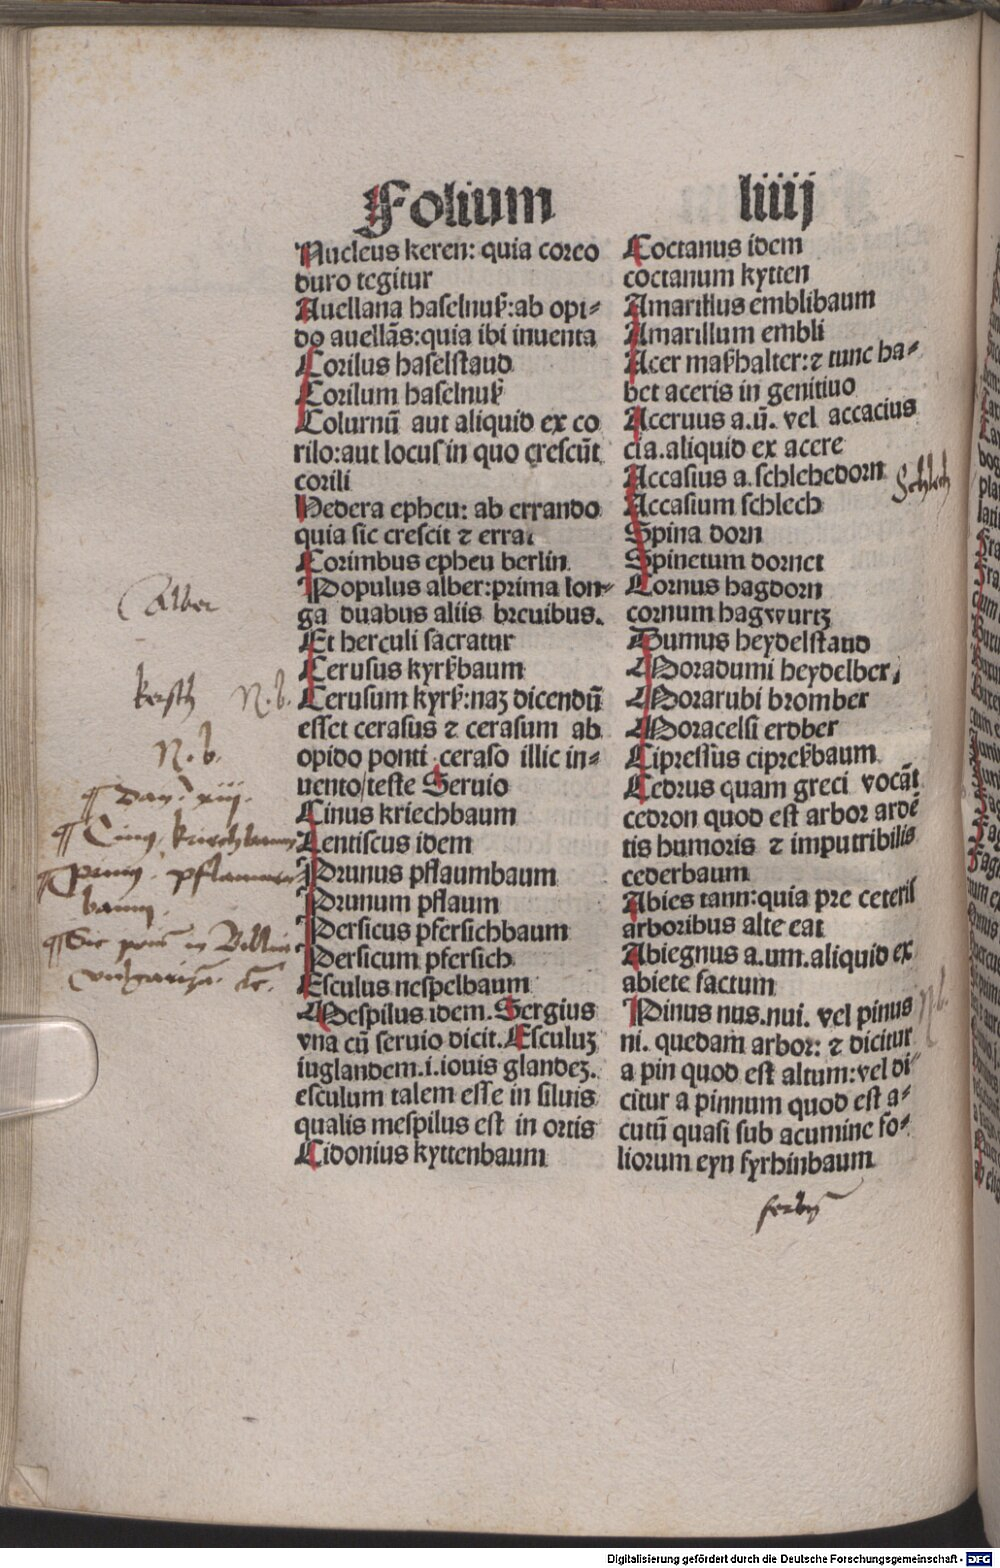 Folium liiij
Nucleus keren: quia coreo
duro tegitur
Auellana haselnuß:ab opi-
do auellās:quia ibi inuenta
Corilus haselstaud
Corilum haselnuß
Colurnū aut aliquid ex co
rilo:aut locus in quo crescūt
corili
Hedera epheu: ab errando
quia sic crescit ⁊ errat
Corimbus epheu berlin
Populus alber:prima lon-
ga duabus aliis breuibus.
Et herculi sacratur
Cerusus kyrßbaum
Cerusum kyrß:naꝫ dicendū
esset cerasus ⁊ cerasum ab
opido ponti ceraso illic in-
uento/teste Seruio
Cinus kriechbaum
Lentiscus idem
Prunus pflaumbaum
Prunum pflaum
Persicus pfersichbaum
Persicum pfersich
Esculus nespelbaum
Mespilus idem. Sergius
vna cū seruio dicit. Esculuꝫ
iuglandem.i.iouis glandeꝫ.
esculum talem esse in siluis
qualis mespilus est in ortis
Cidonius kyttenbaum
Coctanus idem
coctanum kytten
Amarillus emblibaum
Amarillum embli
Acer maßhalter:⁊ tunc ha-
bet aceris in genitiuo
Aceruus a.ū. vel accacius
cia.aliquid ex acere
Accasius a.schlehedorn
Accasium schlech
Spina dorn
Spinetum dornet
Cornus hagdorn
cornum hagwurtz
Dumus heydelstaud
Moradumi heydelber
Morarubi bromber
Moracelsi erdber
Cipressus cipreßbaum
Cedrus quam greci vocāt
cedron quod est arbor ardē
tis humoris ⁊ imputribilis
cederbaum
Abies tann:quia pre ceteris
arboribus alte eat
Abiegnus a.um.aliquid ex
abiete factum
Pinus nus.nui. vel pinus
ni. quedam arbor: ⁊ dicitur
a pin quod est altum:vel di-
citur a pinnum quod est a-
cutū quasi sub acumine fo-
liorum eyn fyrhinbaum
Alber
kersch N.b.
N.b.
kriechbaum
pflaumen
baum
Schlech
N.b.
Digitalisierung gefördert durch die Deutsche Forschungsgemeinschaft - DFG